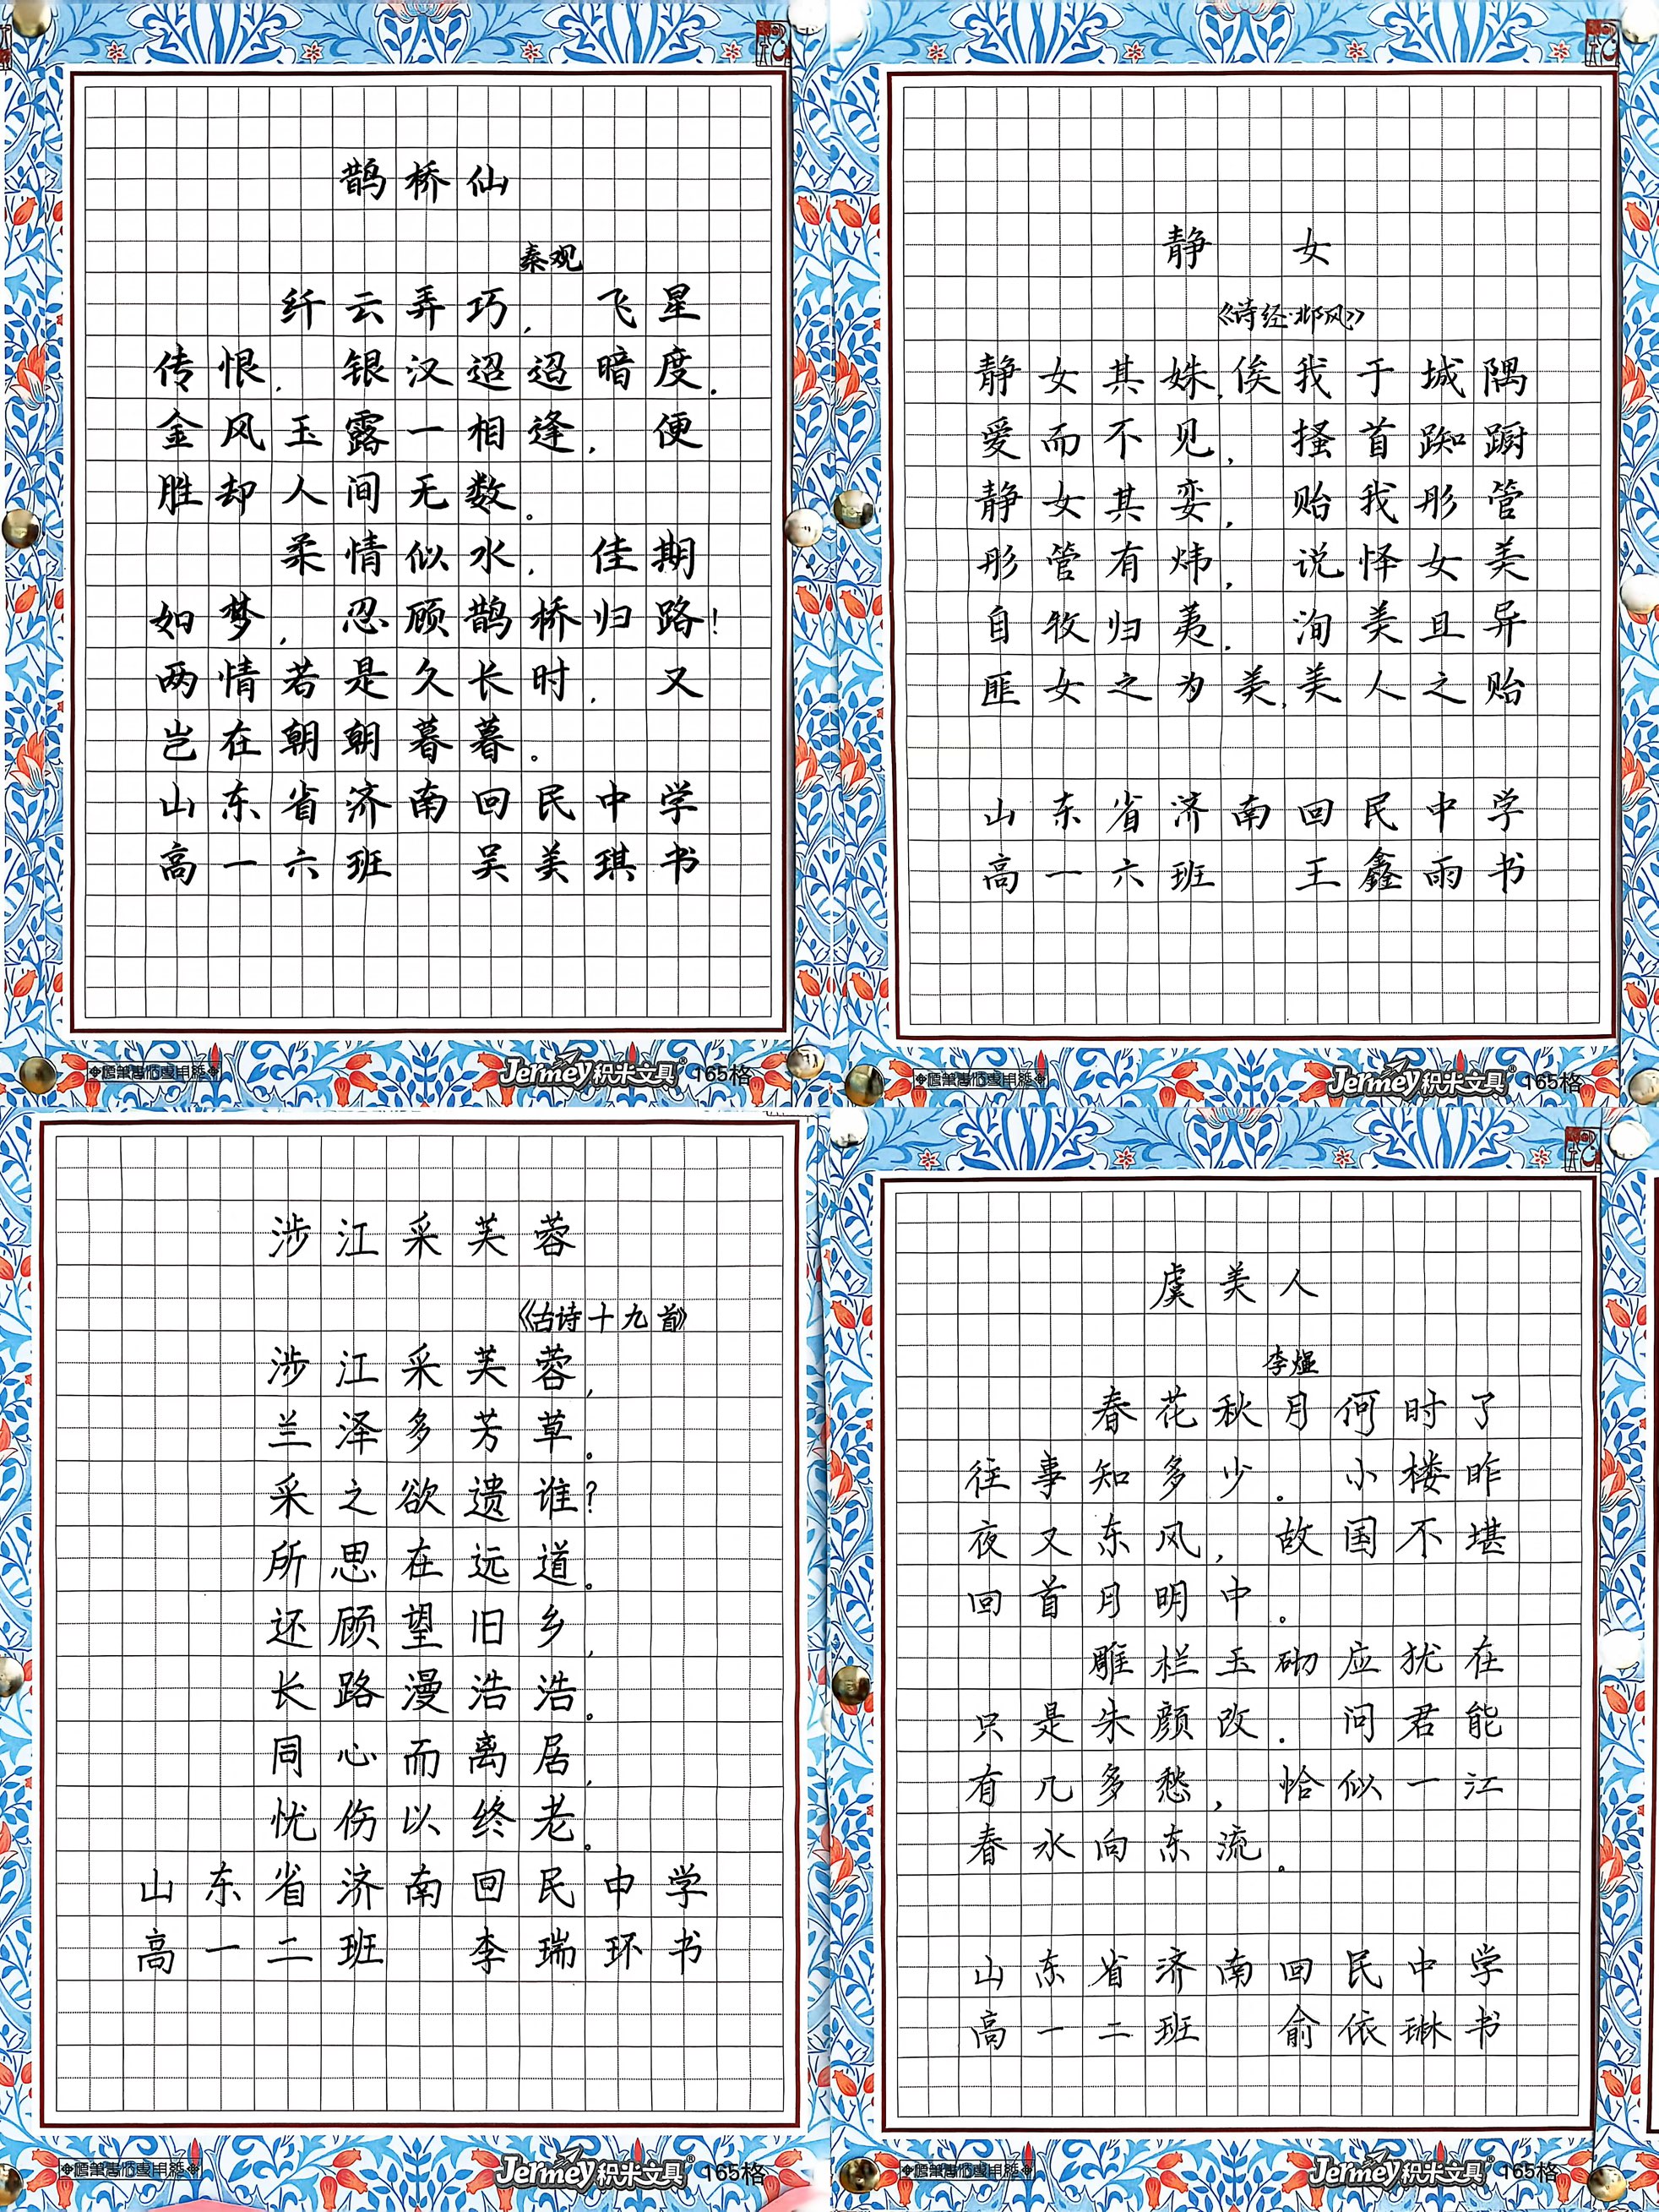 鹊桥仙
秦观
纤云弄巧，飞星
传恨，银汉迢迢暗度。
金风玉露一相逢，便
胜却人间无数。
柔情似水，佳期
如梦，忍顾鹊桥归路！
两情若是久长时，又
岂在朝朝暮暮。
山东省济南回民中学
高一六班 吴美琪书
Jermey积米文具® 165格
静女
《诗经·邶风》
静女其姝，俟我于城隅
爱而不见，搔首踟蹰
静女其娈，贻我彤管
彤管有炜，说怿女美
自牧归荑，洵美且异
匪女之为美，美人之贻
山东省济南回民中学
高一六班 王鑫雨书
Jermey积米文具® 165格
涉江采芙蓉
《古诗十九首》
涉江采芙蓉，
兰泽多芳草。
采之欲遗谁？
所思在远道。
还顾望旧乡，
长路漫浩浩。
同心而离居，
忧伤以终老。
山东省济南回民中学
高一二班 李瑞环书
Jermey积米文具® 165格
虞美人
李煜
春花秋月何时了
往事知多少。小楼昨
夜又东风，故国不堪
回首月明中。
雕栏玉砌应犹在
只是朱颜改。问君能
有几多愁，恰似一江
春水向东流。
山东省济南回民中学
高一二班 俞依琳书
Jermey积米文具® 165格